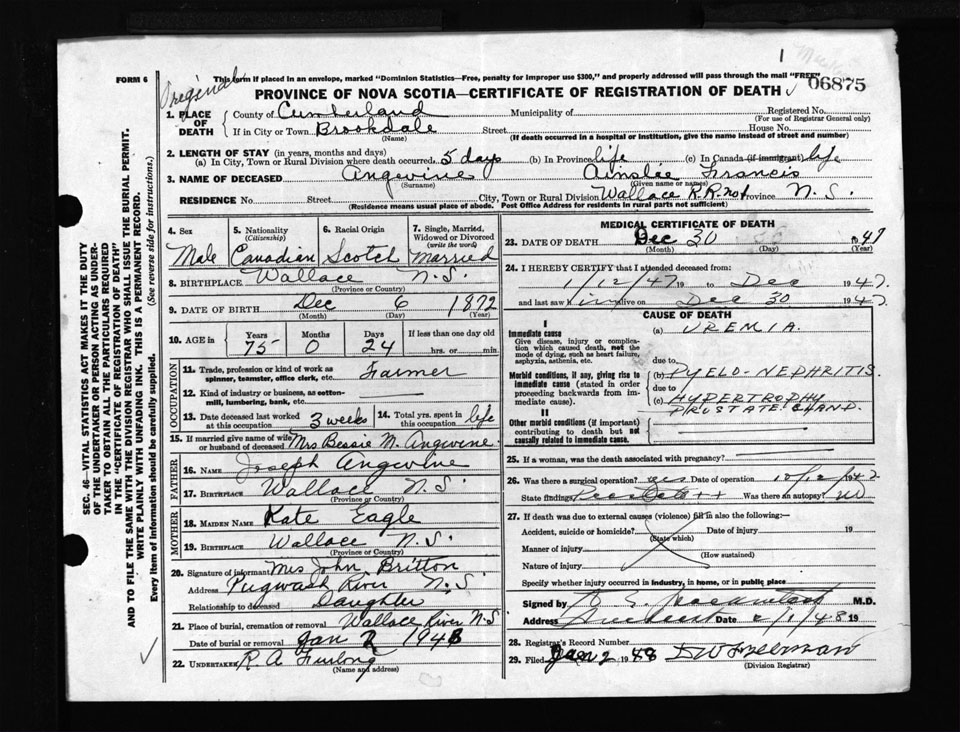 1
FORM 6
This form if placed in an envelope, marked "Dominion Statistics—Free, penalty for improper use $300," and properly addressed will pass through the mail "FREE"
06875
PROVINCE OF NOVA SCOTIA—CERTIFICATE OF REGISTRATION OF DEATH
1. PLACE OF DEATH
County of Cumberland Municipality of Registered No.
(For use of Registrar General only)
If in City or Town Brookdale Street House No.
(Name) (If death occurred in a hospital or institution, give the name instead of street and number)
2. LENGTH OF STAY (in years, months and days)
(a) In City, Town or Rural Division where death occurred. 5 days (b) In Province life (c) In Canada (if immigrant) life
3. NAME OF DECEASED Angevine Ainslie Francis
(Surname) (Given name or names)
RESIDENCE No. Street City, Town or Rural Division Wallace R.R. no 1 Province N.S.
(Residence means usual place of abode. Post Office Address for residents in rural parts not sufficient)
4. Sex Male
5. Nationality (Citizenship) Canadian
6. Racial Origin Scotch
7. Single, Married, Widowed or Divorced (write the word) Married
8. BIRTHPLACE Wallace N.S.
(Province or Country)
9. DATE OF BIRTH Dec 6 1872
(Month) (Day) (Year)
10. AGE in Years 75 Months 0 Days 24 If less than one day old hrs. or min.
OCCUPATION
11. Trade, profession or kind of work as spinner, teamster, office clerk, etc. Farmer
12. Kind of industry or business, as cotton-mill, lumbering, bank, etc.
13. Date deceased last worked at this occupation 3 weeks
14. Total yrs. spent in this occupation life
15. If married give name of wife or husband of deceased Mrs Bessie M. Angevine
FATHER
16. NAME Joseph Angevine
17. BIRTHPLACE Wallace N.S.
(Province or Country)
MOTHER
18. MAIDEN NAME Kate Eagle
19. BIRTHPLACE Wallace N.S.
(Province or Country)
20. Signature of informant Mrs John Britton
Address Pugwash River N.S.
Relationship to deceased Daughter
21. Place of burial, cremation or removal Wallace River N.S
Date of burial or removal Jan 2 1948
22. UNDERTAKER R. A. Furlong
(Name and address)
MEDICAL CERTIFICATE OF DEATH
23. DATE OF DEATH Dec 30 1947
(Month) (Day) (Year)
24. I HEREBY CERTIFY that I attended deceased from:
1/12/47 19 to Dec 1947
and last saw him alive on Dec 30 1947.
CAUSE OF DEATH
I
Immediate cause (a) UREMIA.
Give disease, injury or complication which caused death, not the mode of dying, such as heart failure, asphyxia, asthenia, etc.
due to
Morbid conditions, if any, giving rise to immediate cause (stated in order proceeding backwards from immediate cause).
(b) PYELO-NEPHRITIS.
due to
(c) HYPERTROPHY PROSTATE GLAND.
II
Other morbid conditions (if important) contributing to death but not causally related to immediate cause.
25. If a woman, was the death associated with pregnancy?
26. Was there a surgical operation? yes Date of operation 10/12/1947
State findings Prostate ++ Was there an autopsy? no
27. If death was due to external causes (violence) fill in also the following:—
Accident, suicide or homicide? Date of injury 19
(State which)
Manner of injury
(How sustained)
Nature of injury
Specify whether injury occurred in industry, in home, or in public place
Signed by M.D.
Address Amherst Date 2/1/48 19
28. Registrar's Record Number
29. Filed Jan 2 1948
(Division Registrar)
SEC. 46—VITAL STATISTICS ACT MAKES IT THE DUTY
OF THE UNDERTAKER OR PERSON ACTING AS UNDER-
TAKER TO OBTAIN ALL THE PARTICULARS REQUIRED
IN THE "CERTIFICATE OF REGISTRATION OF DEATH"
AND TO FILE THE SAME WITH THE DIVISION REGISTRAR WHO SHALL ISSUE THE BURIAL PERMIT.
WRITE PLAINLY WITH UNFADING INK. THIS IS A PERMANENT RECORD.
Every item of information should be carefully supplied. (See reverse side for instructions.)